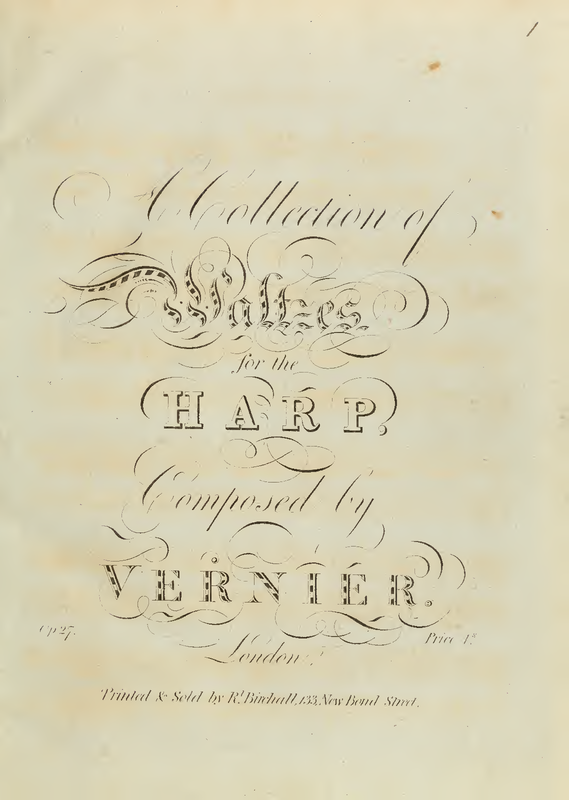 1
A Collection of
Waltzes.
for the
HARP,
Composed by
VERNIÉR.
Op 27.
Price 4s
London.
Printed & Sold by Rt. Birchall, 133, New Bond Street.